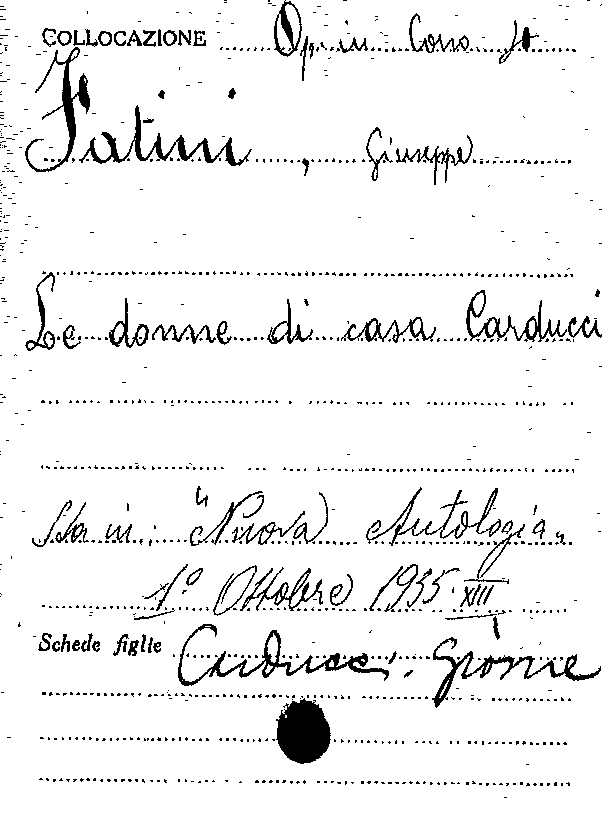 COLLOCAZIONE Op. in Cons
Fatini, Giuseppe
Le donne di casa Carducci
Sta in: "Nuova Antologia"
1º Ottobre 1935. XIII
Schede figlie Carducci.